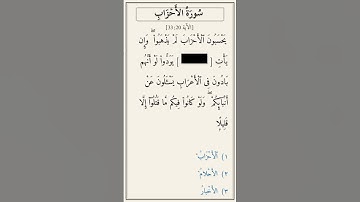 سُورَةُ الأَحْزَابِ
[الآية 33:20]
يَحْسَبُونَ ٱلْأَحْزَابَ لَمْ يَذْهَبُوا۟ ۖ وَإِن
يَأْتِ [ ] يَوَدُّوا۟ لَوْ أَنَّهُم
بَادُونَ فِى ٱلْأَعْرَابِ يَسْـَٔلُونَ عَنْ
أَنۢبَآئِكُمْ ۖ وَلَوْ كَانُوا۟ فِيكُم مَّا قَٰتَلُوٓا۟ إِلَّا
قَلِيلًا
١) ٱلْأَحْزَابُ
٢) ٱلْأَحْلَامُ
٣) ٱلْأَخْبَارُ